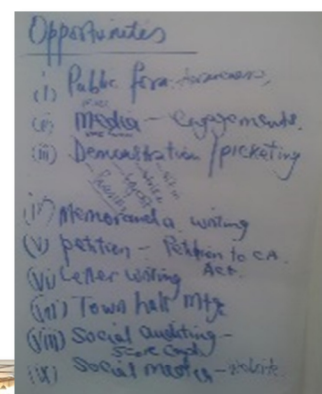 Opportunities
(i) Public fora
(ii) Media - Engagements.
(iii) Demonstration / picketing
(iv) Memoranda writing
(v) petition - Petition to CA.
Act.
(vi) Letter writing
(vii) Town hall Mtg
(viii) Social auditing -
Score
(ix) Social media - website